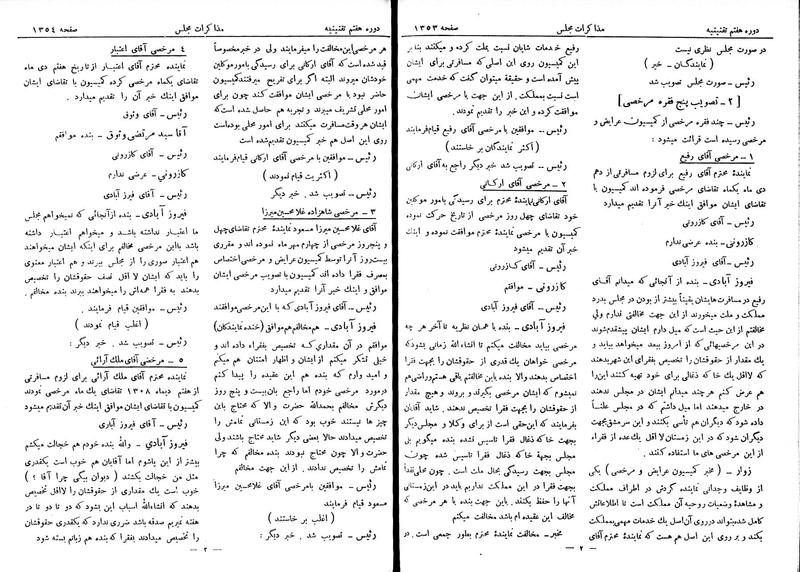 دوره هفتم تقنینیه
مذاکرات مجلس
صفحه ۱۳۵۳
در صورت مجلس نظری نیست
( نمایندگان - خیر )
رئیس - صورت مجلس تصویب شد
[ ۲ - تصویب پنج فقره مرخصی ]
رئیس - چند فقره مرخصی از کمیسیون عرایض و
مرخصی رسیده است قرائت میشود :
۱ - مرخصی آقای رفیع
نمایندهٔ محترم آقای رفیع برای لزوم مسافرتی از دهم
دی ماه یکماه تقاضای مرخصی فرموده اند کمیسیون با
تقاضای ایشان موافق اینك خبر آنرا تقدیم میدارد
رئیس - آقای کازرونی
کازرونی - بنده عرضی ندارم
رئیس - آقای فیروز آبادی
فیروز آبادی - بنده از آنجائی که میدانم آقای
رفیع در مسافرت هایشان یقیناً بیشتر از بودن در مجلس بدرد
مملکت و ملت میخورند از این جهت مخالفتی ندارم ولی
مخالفتم از این حیث است که میل دارم ایشان پیشقدم شوند
در این مرخصیهائی که از امروز ببعد میخواهد بیاید و
یك مقدار از حقوقشان را تخصیص بفقرای این شهر بدهند
که لااقل یك خاکه ذغالی برای خود تهیه کنند این را
هم عرض کنم هرچند میدانم ایشان در مجلس ندهند
در خارج میدهند اما میل داشتم که در مجلس علناً
داده شود که دیگران هم تأسی بکنند و این سرمشق بجهت
دیگران شود که در این زمستان لااقل یك عده از فقراء
از این مرخصی های ما استفاده کنند .
زوار - ( مخبر کمیسیون عرایض و مرخصی ) یکی
از وظایف وجدانی نماینده گردش در اطراف مملکت
و مشاهدهٔ وضعیات روحیه آن مملکت است تا اطلاعاتش
کامل شده بتواند در روی آن اصل یك خدمات مهمی بمملکت
بکند و بر روی این اصل هم هست که نمایندهٔ محترم آقای
رفیع خدمات شایان نسبت بملت کرده و میکنند بنا بر
این کمیسیون روی این اصلی که مسافرتی برای ایشان
پیش آمده است و حقیقة میتوان گفت که خدمت مهمی
است نسبت بمملکت . از این جهت با مرخصی ایشان
موافقت کرده و این خبر را تقدیم نمودند .
رئیس - موافقین با مرخصی آقای رفیع قیام فرمایند
( اکثر نمایندگان بر خاستند )
رئیس - تصویب شد خبر دیگر راجع به آقای ارکانی
۲ - مرخصی آقای ارکانی
آقای ارکانی نمایندهٔ محترم برای رسیدگی بامور موکلین
خود تقاضای چهل روز مرخصی از تاریخ حرکت نموده
کمیسیون با مرخصی نمایندهٔ محترم موافقت نموده و اینك
خبر آن تقدیم میشود
رئیس - آقای کازرونی
کازرونی - موافقم
رئیس - آقای فیروز آبادی
فیروز آبادی - بنده با همان نظریه تا آخر هر چه
مرخصی بیاید مخالفت میکنم تا انشاء الله زمانی بشود که
مرخصی خواهان یك قدری از حقوقشان را بجهت فقرا
اختصاص بدهند والا بنده باین مخالفتم باقی هستم و راضی هم
نمیشوم که ایشان مرخصی بگیرند و بروند و هیچ مقدار
از حقوقشان را بجهت فقرا تخصیص ندهند. شاید آقایان
بفرمایند که این حقی است از برای وکلا و مجلس دیگر
بجهت خاکه ذغال فقرا تاسیس نشده بنده میگویم بلی
مجلس بجهة خاکه ذغال فقرا تاسیس نشده چون
مجلس بجهت رسیدگی بحال ملت است . چون محلی نقداً
جهت فقرا در این مملکت نداریم باید در این زمستانی
آنها را حفظ بکنند . باین جهت بنده با هر مرخصی که
مخالف این عقیده ام باشد مخالفت میکنم
مخبر - مخالفت نمایندهٔ محترم بطور جمعی است . در
- ۲ -
دوره هفتم تقنینیه
مذاکرات مجلس
صفحه ۱۳۵٤
هر مرخصی این مخالفت را میفرمایند ولی در خبر مخصوصاً
قید شده است که آقای ارکانی برای رسیدگی بامور موکلین
خودشان میروند البته اگر برای تفریح میرفتند کمیسیون
حاضر نبود با مرخصی ایشان موافقت کند چون برای
امور محلی تشریف میبرند و تجربه هم حاصل شده است که
ایشان هر وقت مسافرت میکنند برای امور محلی بوده است
روی این اصل هم خبر کمیسیون تقدیم شده است
رئیس - موافقین با مرخصی آقای ارکانی قیام فرمایند
( اکثریت قیام نمودند )
رئیس - تصویب شد . خبر دیگر
۳ - مرخصی شاهزاده غلامحسین میرزا
آقای غلامحسین میرزا مسعود نمایندهٔ محترم تقاضای چهل
و پنجروز مرخصی از چهارم مهر ماه نموده اند و مقرری
بیست روز آنرا توسط کمیسیون عرایض و مرخصی اختصاص
بمصرف فقرا داده اند کمیسیون با تصویب مرخصی ایشان
موافق و اینك خبر آنرا تقدیم میدارد
رئیس - آقای فیروز آبادی که با این مرخصی موافقند
فیروز آبادی - هم مخالفم هم موافق (خنده نمایندگان)
موافقم در آن مقداری که تخصیص بفقراء داده اند و
خیلی تشکر میکنم از ایشان و اظهار امتنان هم میکنم
و امید وارم که بنده هم این عقیده را پیدا کنم
در مورد مرخصی خودم اما راجع بان بیست و پنج روز
دیگرش مخالفم بحمدالله حضرت والا که محتاج باین
چیز ها نیستند خوب بود که این زمستانی تمامش را
تخصیص میدادند حالا بعضی دیگر شاید محتاج باشند ولی
حضرت والا چون محتاج نبودند بنده مخالفم که چرا
تمامش را تخصیص ندادند . از این جهت مخالفم
رئیس - موافقین با مرخصی آقای غلامحسین میرزا
مسعود قیام فرمایند
( اغلب بر خاستند )
رئیس - تصویب شد . خبر دیگر :
٤ مرخصی آقای اعتبار
نماینده محترم آقای اعتبار از تاریخ هفتم دی ماه
تقاضای یکماه مرخصی کرده کمیسیون با تقاضای ایشان
موافق اینك خبر آن را تقدیم میدارد .
رئیس - آقای وثوق
آقا سید مرتضی وثوق - بنده موافقم
رئیس - آقای کازرونی
کازرونی - عرضی ندارم
رئیس - آقای فیروز آبادی
فیروز آبادی - بنده از آنجائی که نمیخواهم مجلس
ما اعتبار نداشته باشد و میخواهم اعتبار داشته
باشد با این مرخصی مخالفم برای اینکه ایشان میخواهند
هم اعتبار صوری را از مجلس ببرند و هم اعتبار معنوی
را باید که ایشان لا اقل نصف حقوقشان را تخصیص
بدهند به فقرا همه اش را میخواهند ببرند بنده مخالفم.
رئیس - موافقین قیام فرمایند .
( اغلب قیام نمودند )
رئیس - تصویب شد . خبر دیگر :
٥ - مرخصی آقای ملك آرائی
نماینده محترم آقای ملك آرائی برای لزوم مسافرتی
از هفتم دیماه ۱۳۰۸ تقاضای یك ماه مرخصی نموده
کمیسیون با تقاضای ایشان موافق اینك خبر آن تقدیم میشود
فیروز آبادی - والله بنده خودم هم خجالت میکشم
بیشتر از این پاشوم اما آقایان هم خوب است یکقدری
مثل من خجالت بکشند ( دیوان بیگی چرا آقا ؟ )
خوب است یك مقداری از حقوقشان را لااقل تخصیص
بدهند که انشاءالله اسباب این بشود که دو تا دو تا در
هفته نمیریم صدقه باشد ضرری ندارد که یکقدری حقوقشان
را تخصیص میدادند بفقرا که بنده هم زبانم بسته شود
- ۳ -